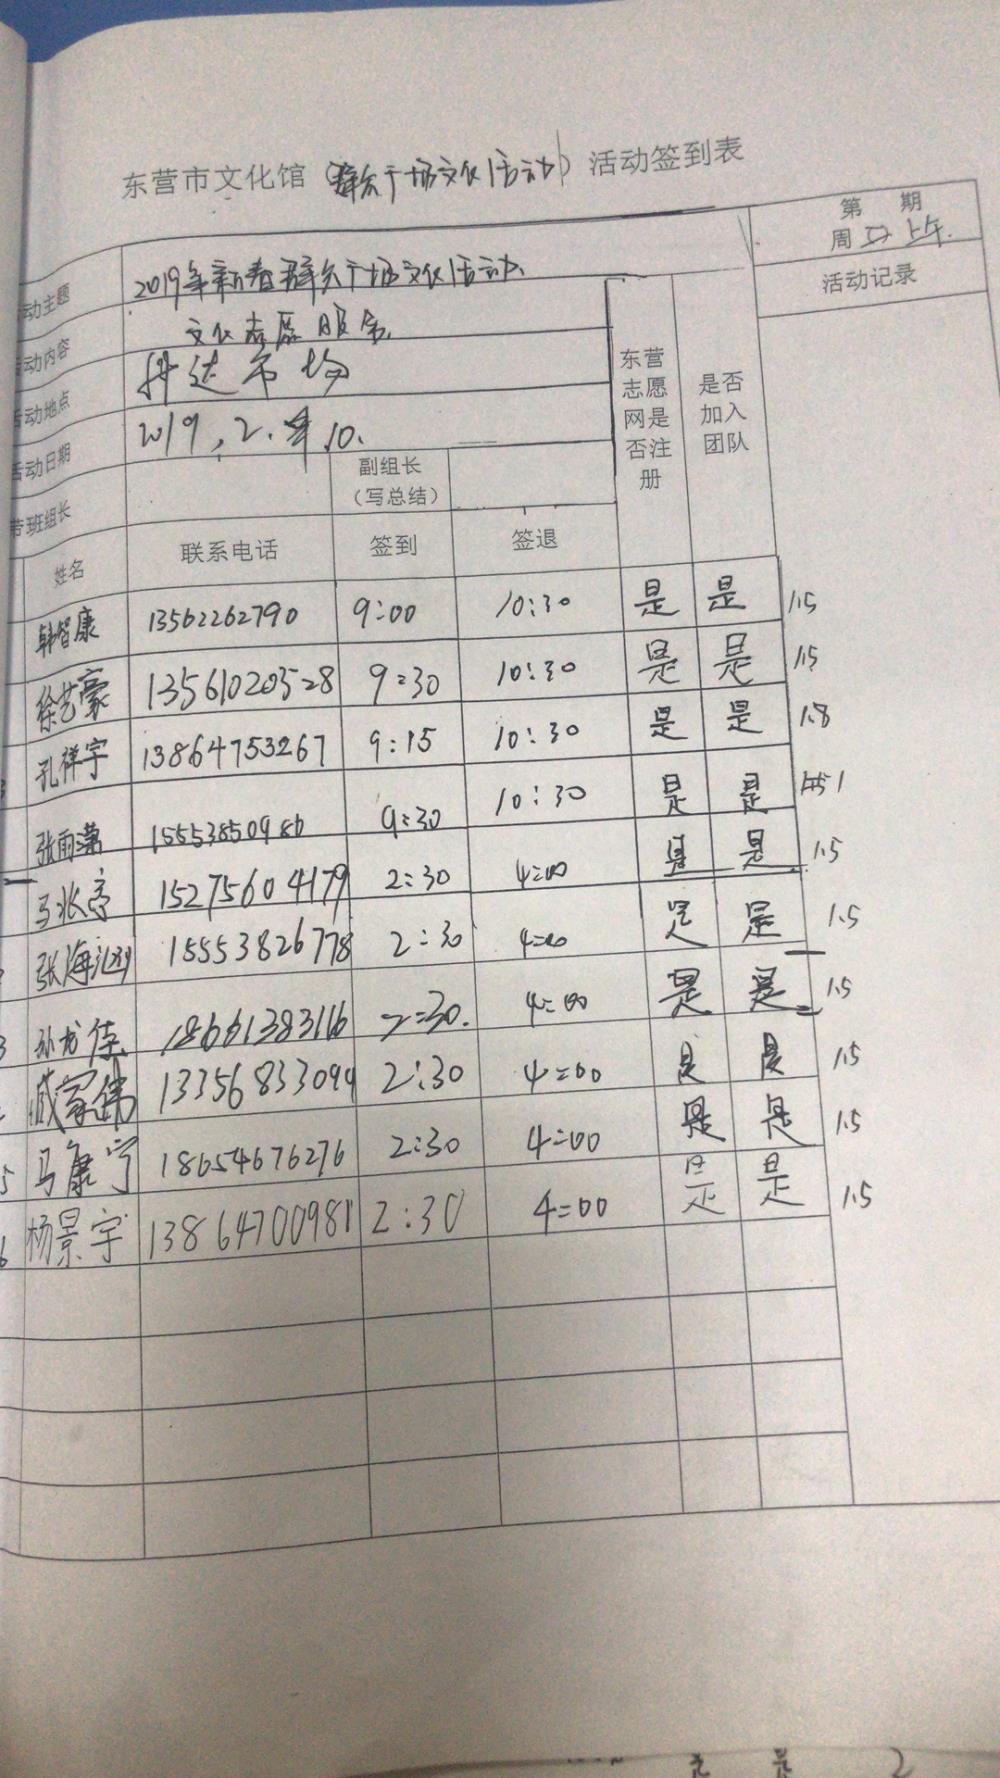 东营市文化馆（群众广场文化活动）活动签到表
第 期
周日上午
动主题 2019年新春群众广场文化活动
活动记录
动内容 文化志愿服务
动地点
动日期 2019.2. 10.
带班组长 副组长（写总结）
东营志愿网是否注册 是否加入团队
姓名 联系电话 签到 签退
韩智康 13562262790 9:00 10:30 是 是 1.5
徐艺豪 13561020528 9:30 10:30 是 是 1.5
孔祥宇 13864753267 9:15 10:30 是 是 1.8
张雨潇 15553850986 9:30 10:30 是 是 1
马兆亭 15275604179 2:30 4:00 是 是 1.5
张海 15553826778 2:30 4:00 是 是 1.5
孙龙 18661383116 2:30. 4:00 是 是 1.5
臧家伟 13356833094 2:30 4:00 是 是 1.5
5 马康宁 18654676276 2:30 4:00 是 是 1.5
6 杨景宇 13864700981 2:30 4:00 是 是 1.5
是 是 2